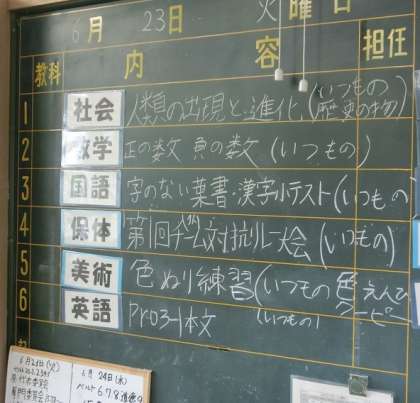 6月 23日 火曜日
教科 内容 担任
1 社会 人類の出現と進化(いつもの歴史の物)
2 数学 正の数 負の数(いつもの)
3 国語 字のない葉書・漢字小テスト(いつもの
4 保体 第1回チーム対抗リレー大会(いつもの)
5 美術 色ぬり練習(いつもの 色えんぴ
6 英語 Pro3-1本文(いつもの)
6月24日(水)